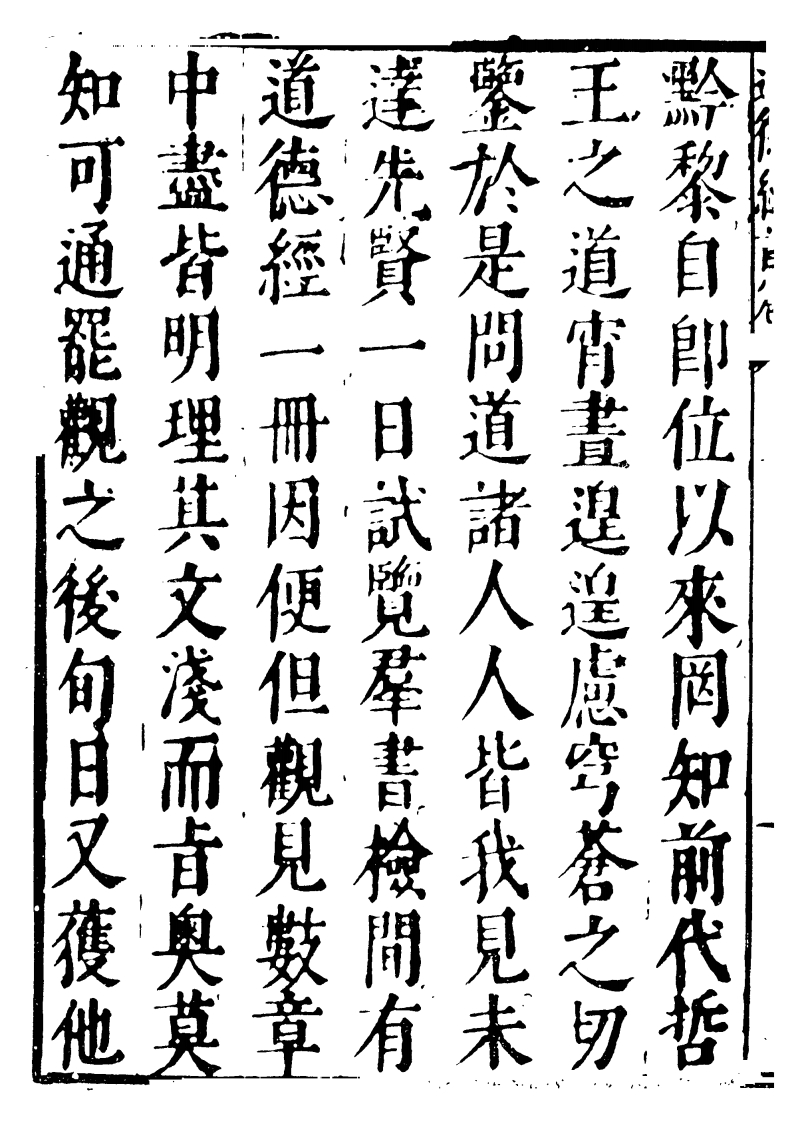 黔黎自即位以來罔知前代哲
王之道宵晝遑遑慮穹蒼之切
鑒於是問道諸人人皆我見未
達先賢一日試覽羣書檢間有
道德經一冊因便但觀見數章
中盡皆明理其文淺而旨奥莫
知可通罷觀之後旬日又獲他